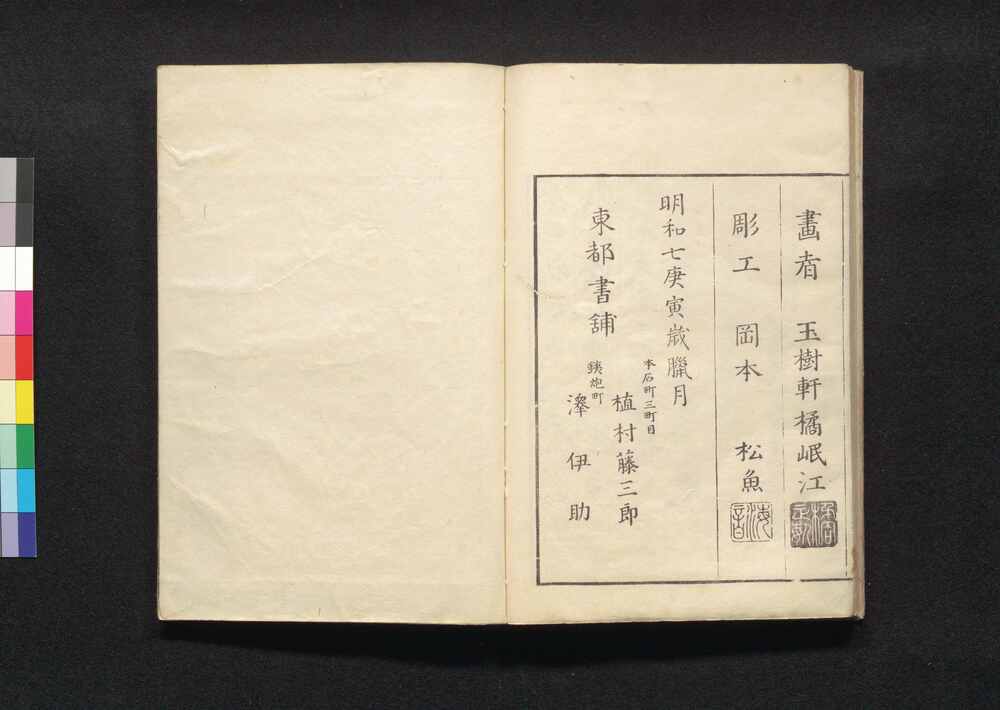 畫者 玉樹軒橘岷江
彫工 岡本 松魚
明和七庚寅歳臘月
東都書舗
本石町三町目
植村藤三郎
鉄炮町
澤伊助